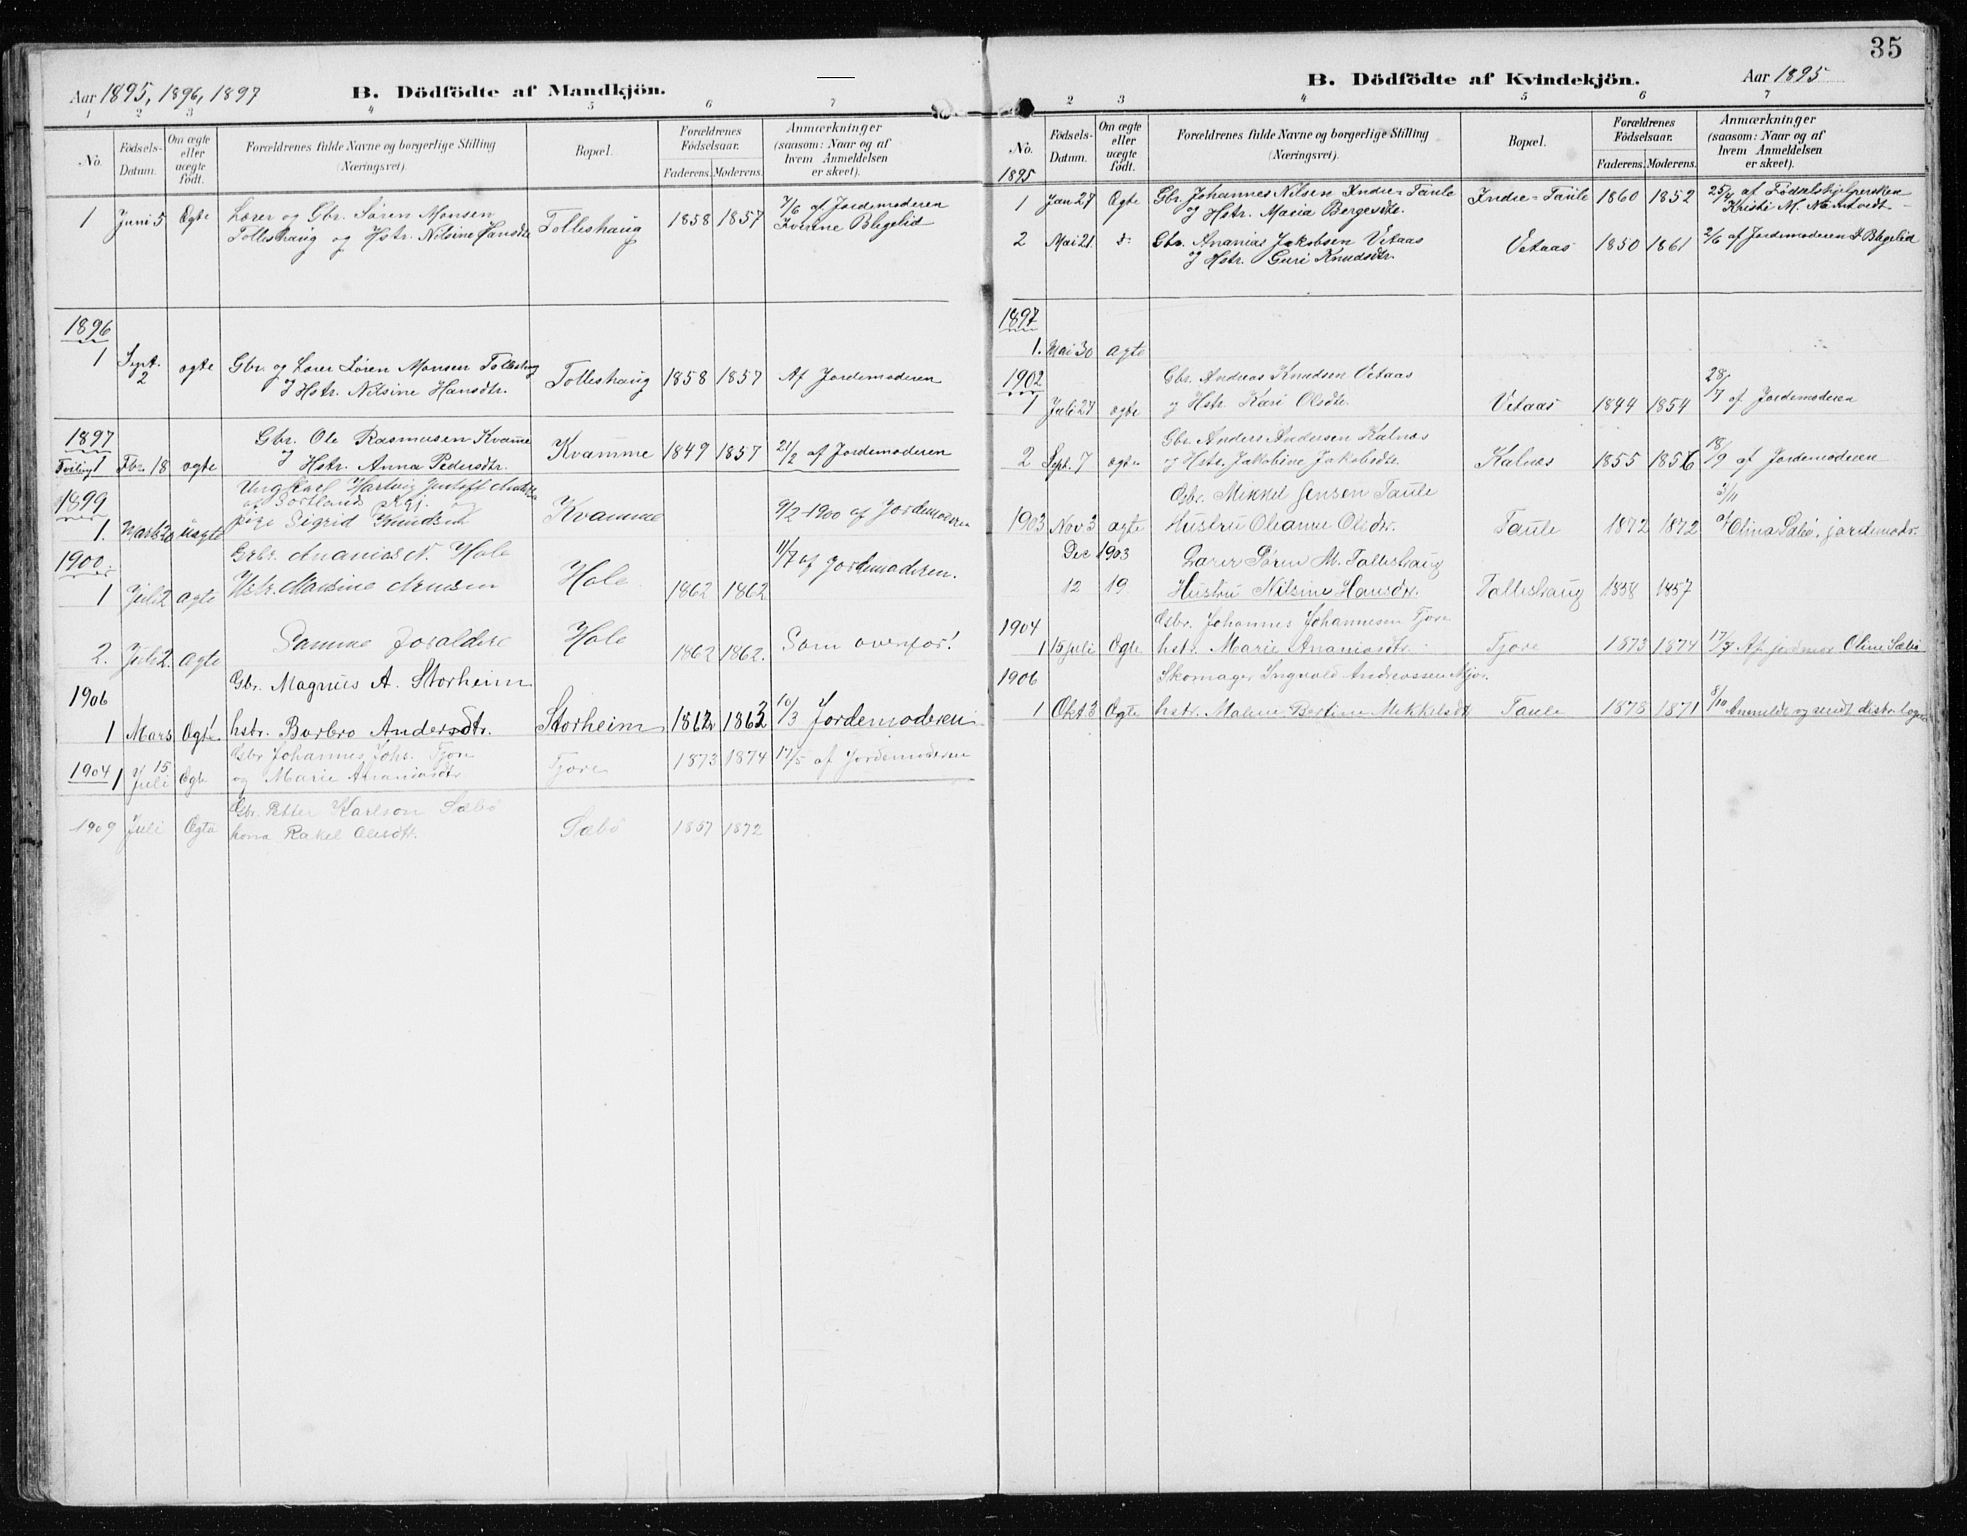 Aar 1895, 1896, 1897
B. Dödfödte af Mandkjön.
1 2 3 4 5 6 7
No.
Födsels-Datum.
Om ægte eller uægte födt.
Forældrenes fulde Navne og borgerlige Stilling (Næringsvei).
Bopæl.
Forældrenes Födselsaar.
Faderens. Moderens.
Anmærkninger (saasom: Naar og af hvem Anmeldelsen er skeet).
1 Juni 5 Ægte Lærer og Gbr. Sören Monsen Tolleshaug 1858 1857 7/6 af Jordemoderen
Tolleshaug og Hstr. Nilsine Hansdtr. Iverine Blegelid
1896
1 Sept. 2 ægte Gbr. og Lærer Sören Monsen Tolleshaug Tolleshaug 1858 1857 Af Jordemoderen
og Hstr. Nilsine Hansdtr.
1897
Tviling 1 Fbr. 18 ægte Gbr. Ole Rasmusen Kvamme Kvamme 1849 1857 21/2 af Jordemoderen
og Hstr. Anna Pedersdtr.
1899
Ungkarl Hartvig Gustaff
1. Mars 20 uægte pige Sigrid Knudsdt Kvamme 9/2 1900 af Jordemoderen
1900
Grbr. Ananias N. Hole 11/7 af Jordemoderen.
1 Juli 2 ægte Hstr. Marsine Hole 1862 1862
2. Juli 2. ægte Samme foraldre Hole 1862 1862. Som ovenfor!
1906
Gbr. Magnus A. Storheim
1 Mars Ægte! hstr. Barbro Andersdtr. Storheim 1862 1863 10/3 Jordemoderen
1904 1 15 Juli Ægte Gbr Johannes Johs. Tjore Tjore 1873 1874 17/5 af Jordemoderen
og Marie Ananiasdtr
1909 Juli Ægte Gbr. Petter Karlson Sæbö Sæbö 1857 1872
kona Rakel Olesdtr.
35
B. Dödfödte af Kvindekjön.
Aar 1895
2 3 4 5 6 7
No.
Födsels-Datum.
Om ægte eller uægte födt.
Forældrenes fulde Navne og borgerlige Stilling (Næringsvei).
Bopæl.
Forældrenes Födselsaar.
Faderens. Moderens.
Anmærkninger (saasom: Naar og af hvem Anmeldelsen er skeet).
1895
1 Jan 27 Ægte Gbr. Johannes Nilsen Indre-Taule Indre-Taule 1860 1852 25/4 af Fødselshjelpersken
og Hstr. Maria Bergesdtr. Kristi M. Namtvedt
2 Mai 21 do Gbr. Ananias Jakobsen Vetaas Vetaas 1850 1861 2/6 af Jordemoderen I Blegelid
og Hstr. Guri Knudsdtr.
1897
1. Mai 30 ægte
1902
Gbr. Andreas Knudsen Vetaas
1 Juli 27 ægte og Hstr. Kari Olsdtr. Vetaas 1844 1854 28/7 af Jordemoderen
Gbr. Anders Andersen Kalnes
2 Sept. 7 ægte og Hstr. Jakobine Jakobsdtr. Kalnes 1855 1856 18/9 af Jordemoderen
Gbr. Mikkel Jensen Taule 5/11
1903 Nov 3 ægte Hustru Oleanne Olsdtr. Taule 1872 1872 af Olina Sæbö, jordemodr
Dec 1903 Lærer Sören M. Tolleshaug
12 19. Hustru Nilsine Hansdtr. Tolleshaug 1858 1857
1904
Gbr. Johannes Johannesen Tjore
1 15 juli Ægte hstr. Marie Ananiasdtr. Tjore 1873 1874 17/7 Af jordmor Oline Sæbö
1906
Skomager Ingvald Andreassen
1 Okt 3 Ægte hstr. Maline Bertine Mikkelsdt Taule 1878 1871 8/10 Anmeldt og sendt distr. lægen